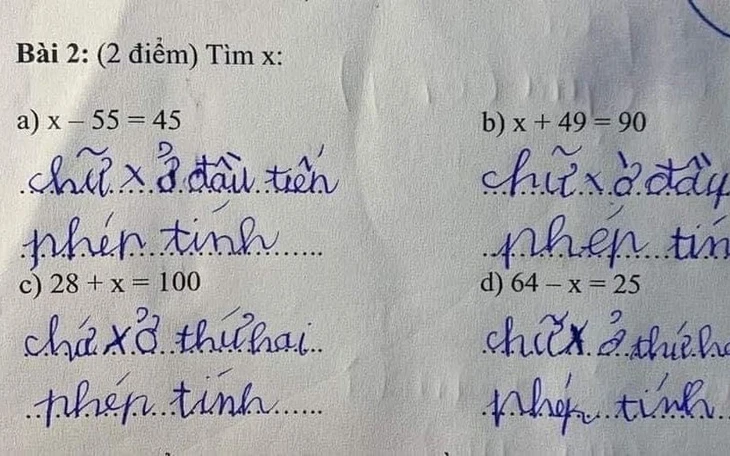 Bài 2: (2 điểm) Tìm x:
a) x – 55 = 45
b) x + 49 = 90
chữ x ở đầu tiến
chữ x ở đầy
phép tính
phép tín
c) 28 + x = 100
d) 64 – x = 25
chữ x ở thứ hai
chữ x ở thứ h
phép tính
phép tính